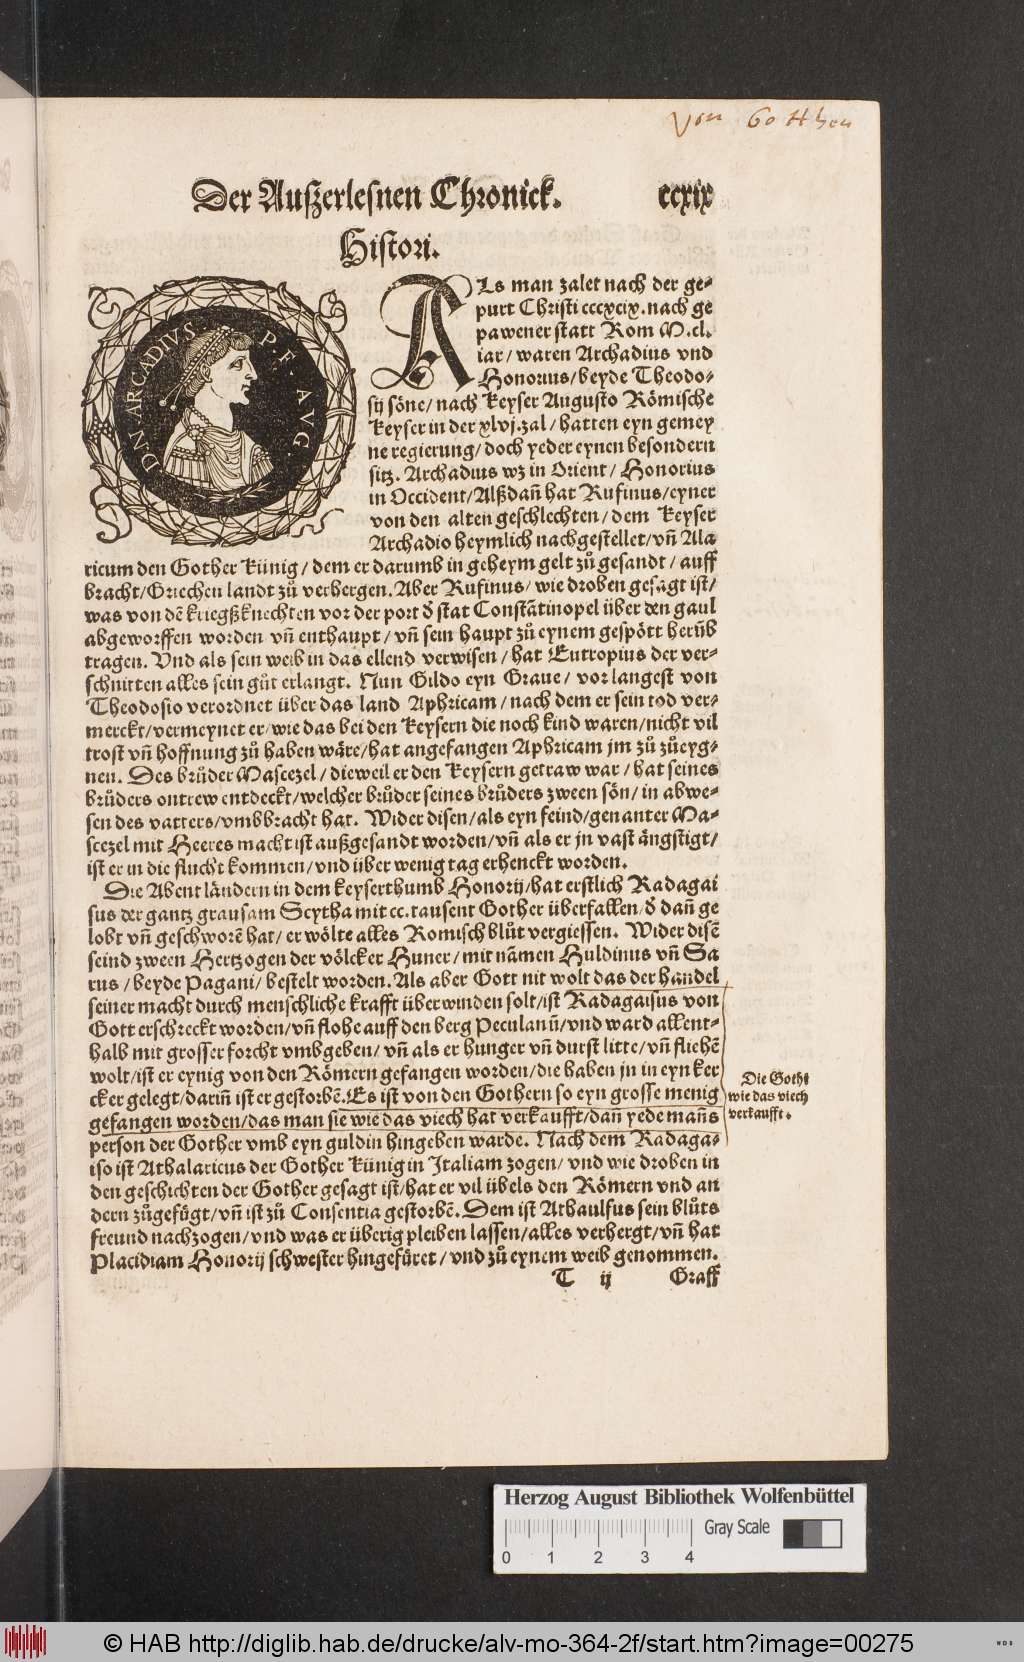 Von Gotthen
Der Außzerlesnen Chronick. ccxix
Histori.
D. N. ARCADIVS. P. F. AVG.
ALs man zalet nach der ge⸗
purt Christi cccxcix. nach ge
pawener statt Rom M.cl.
iar / waren Archadius vnd
Honorius / beyde Theodo⸗
sij söne / nach Keyser Augusto Römische
Keyser in der xlvj.zal / hatten eyn gemey
ne regierung / doch yeder eynen besondern
sitz. Archadius wz in Orient / Honorius
in Occident / Alßdañ hat Rufinus / eyner
von den alten geschlechten / dem Keyser
Archadio heymlich nachgestellet / vñ Ala
ricum den Gother Künig / dem er darumb in geheym gelt zů gesandt / auff
bracht / Griechen landt zů verhergen. Aber Rufinus / wie droben gesagt ist /
was von dē kriegßknechten vor der port d̕ stat Constātinopel über den gaul
abgeworffen worden vñ enthaupt / vñ sein haupt zů eynem gespött herūb
tragen. Vnd als sein weib in das ellend verwisen / hat Eutropius der ver⸗
schnitten alles sein gůt erlangt. Nun Gildo eyn Graue / vor langest von
Theodosio verordnet über das land Aphricam / nach dem er sein tod ver⸗
merckt / vermeynet er / wie das bei den Keysern die noch kind waren / nicht vil
trost vñ hoffnung zů haben wäre / hat angefangen Aphricam jm zů zůeyg⸗
nen. Des brůder Mascezel / dieweil er den Keysern getraw war / hat seines
brůders ontrew entdeckt / welcher brůder seines brůders zween sön / in abwe⸗
sen des vatters / vmbbracht hat. Wider disen / als eyn feind / genanter Ma⸗
scezel mit Heeres macht ist außgesandt worden / vñ als er jn vast ängstigt /
ist er in die flucht kommen / vnd über wenig tag erhenckt worden.
Die Abent ländern in dem keyserthumb Honorij / hat erstlich Radagai
sus der gantz grausam Scytha mit cc. tausent Gother überfallen / d̕ dañ ge
lobt vñ geschworē hat / er wölte alles Romisch blůt vergiessen. Wider disē
seind zween Hertzogen der völcker Huner / mit nāmen Huldinus vñ Sa
rus / beyde Pagani / bestelt worden. Als aber Gott nit wolt das der handel
seiner macht durch menschliche krafft überwinden solt / ist Radagaisus von
Gott erschreckt worden / vñ flohe auff den berg Peculanū / vnd ward allent⸗
halb mit grosser forcht vmbgeben / vñ als er hunger vñ durst litte / vñ fliehē
wolt / ist er eynig von den Römern gefangen worden / die haben jn in eyn ker
cker gelegt / dariñ ist er gestorbē. Es ist von den Gothern so eyn grosse menig
gefangen worden / das man sie wie das viech hat verkaufft / dañ yede mañs
person der Gother vmb eyn guldin hingeben warde. Nach dem Radaga⸗
iso ist Athalaricus der Gother Künig in Italiam zogen / vnd wie droben in
den geschichten der Gother gesagt ist / hat er vil übels den Römern vnd an
dern zůgefůgt / vñ ist zů Consentia gestorbē. Dem ist Athaulfus sein blůts
freund nachzogen / vnd was er überig pleiben lassen / alles verhergt / vñ hat
Placidiam Honorij schwester hingefüret / vnd zů eynem weib genommen.
T ij Graff
Die Gothi
wie das viech
verkaufft.
Herzog August Bibliothek Wolfenbüttel
Gray Scale
0 1 2 3 4
© HAB http://diglib.hab.de/drucke/alv-mo-364-2f/start.htm?image=00275